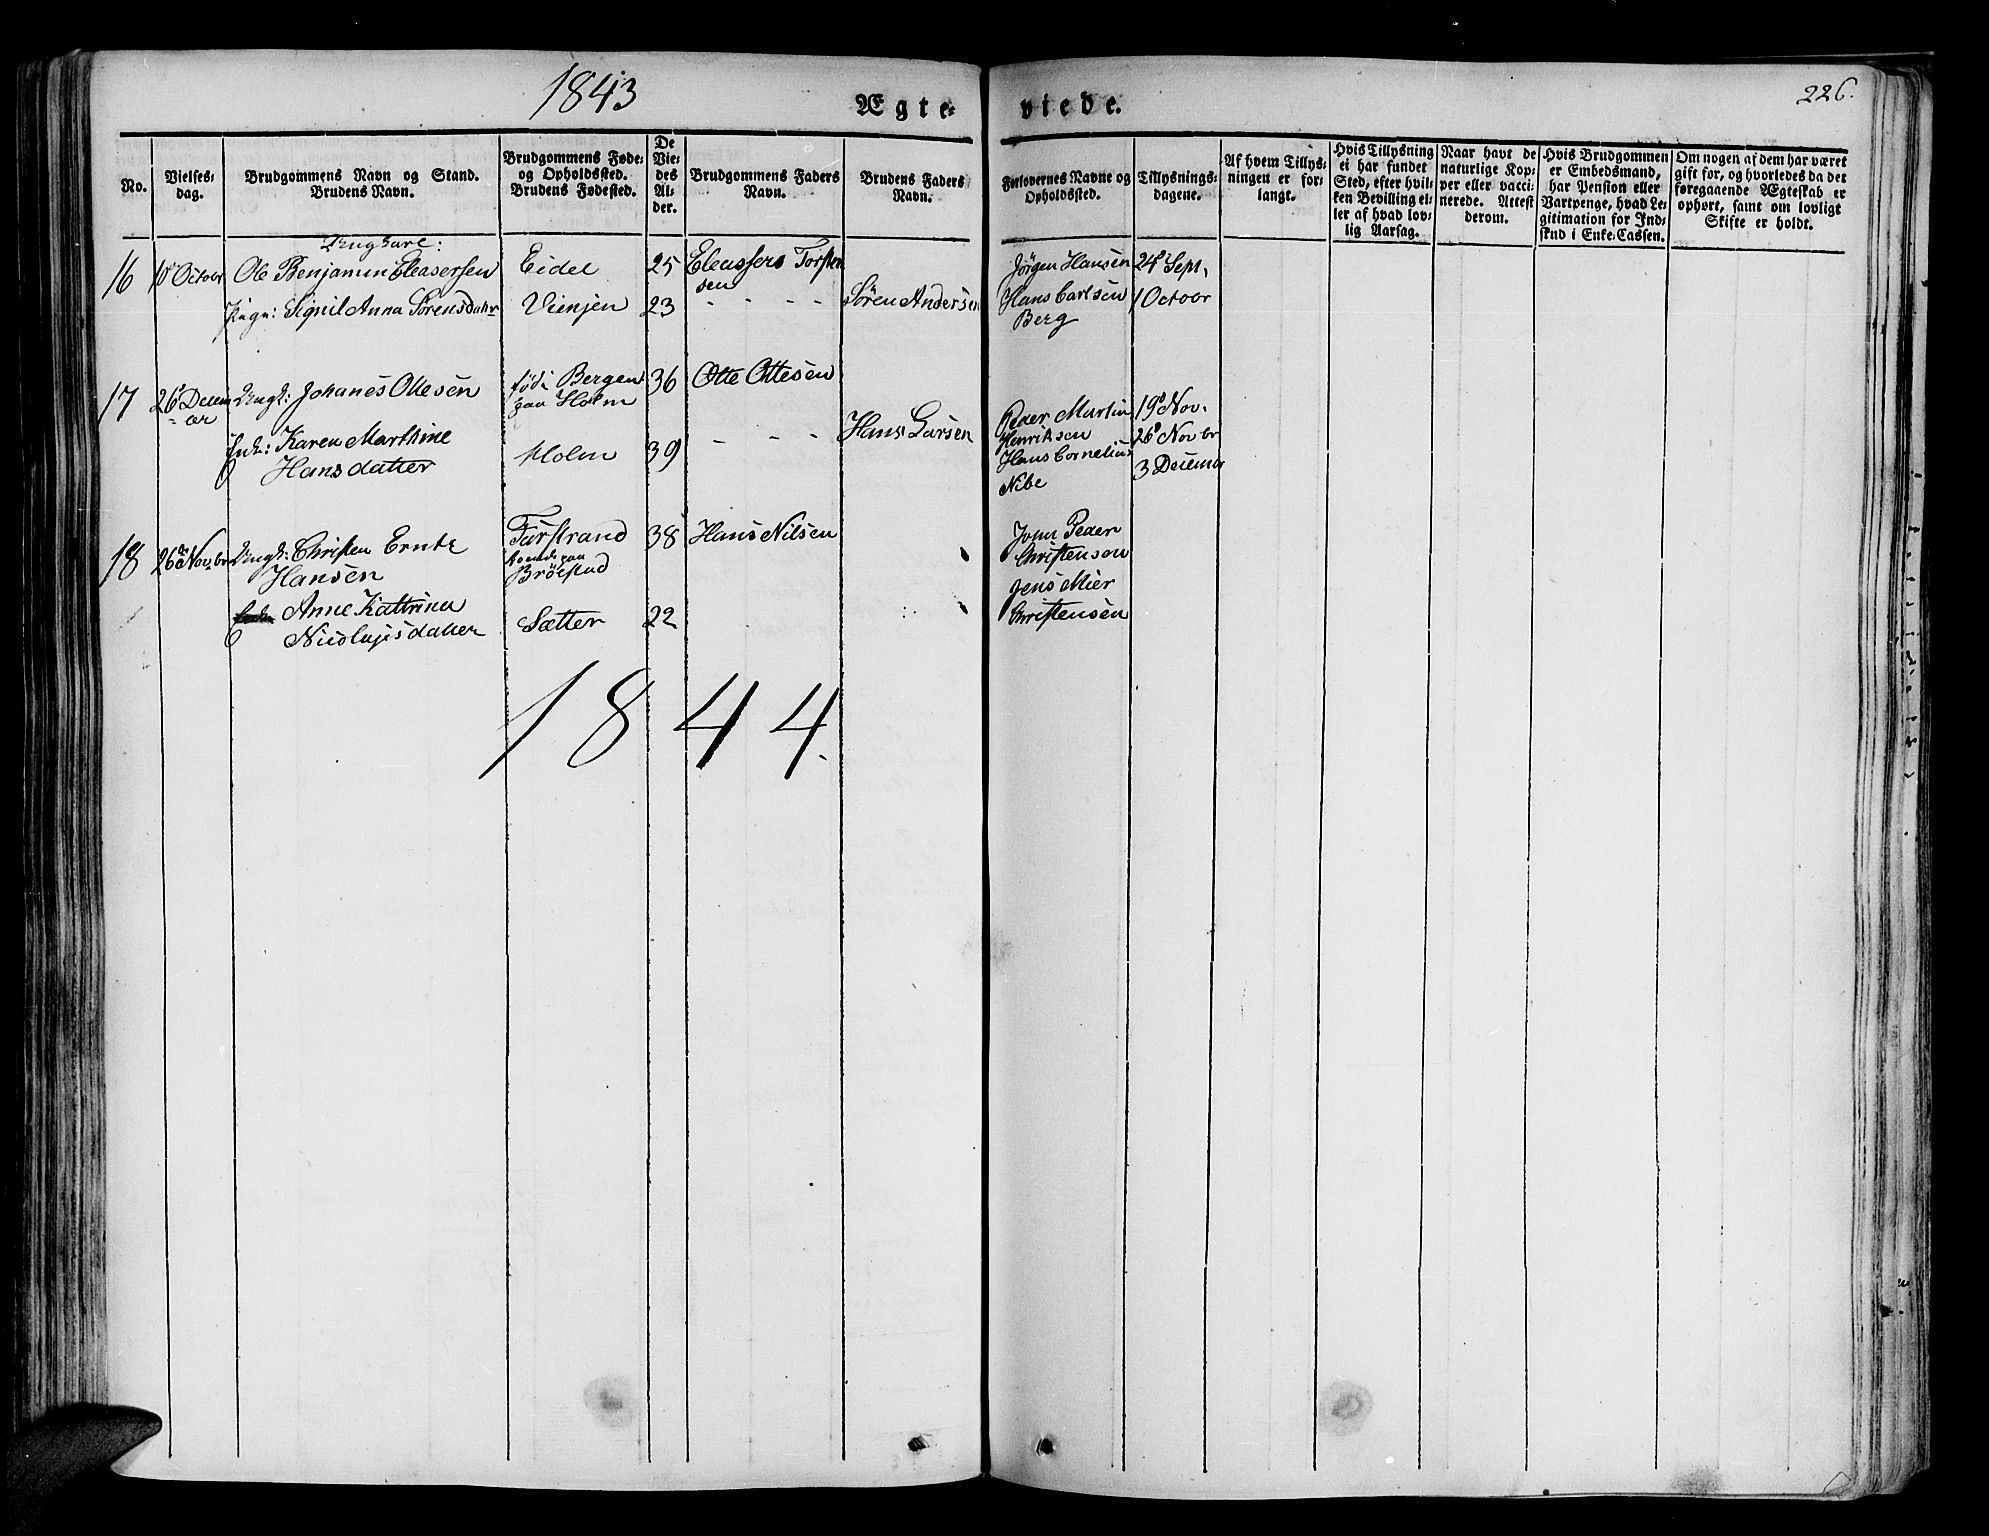 1843
Ægte=
viede.
226.
No.
Vielses=
dag.
Brudgommens Navn og Stand.
Brudens Navn.
Brudgommens Føde=
og Opholdssted.
Brudens Fødested.
De
Vie=
des
Al=
der.
Brudgommens Faders
Navn.
Brudens Faders
Navn.
Forlovernes Navne og
Opholdssted.
Tillysnings=
dagene.
Af hvem Tillys=
ningen er for=
langt.
Hvis Tillysning
ei har fundet
Sted, efter hvil=
ken Bevilling el=
ler af hvad lov=
lig Aarsag.
Naar havt de
naturlige Kop=
per eller vacci=
nerede. Attest
derom.
Hvis Brudgommen
er Embedsmand,
har Pension eller
Vartpenge, hvad Le=
gitimation for Ind=
skud i Enke=Cassen.
Om nogen af dem har været
gift før, og hvorledes da det
foregaaende Ægteskab er
ophørt, samt om lovligt
Skifte er holdt.
Ungkarl:
16 Octobr Ole Benjamin Eleasersen Eidet 25 Eleassers Torsten
sen
Pige: Sigril Anna Sørensdatr Vienjen 23 - - - - Søren Andersen
Jørgen Hansen 24 Sept,
Hans Carlsen 1 Octobr
Berg
17 26 Decem
br
Ungk: Johanes Ottesen
fød i Bergen 36 Otte Ottesen
paa Holm
Enk: Karen Marthine
Hansdatter
Holm 39 - - - Hans Larsen
Peder Martin 19 Nov.
Henriksen 26 Novbr
Hans Cornelius
Nibe 3 Decembr
18 26 Novbr Ungk: Christen Ernte
Hansen
Farstrand 38 Hans Nilsen
boende paa
Brøestad
Anne Kattrina
Nicolajsdatter
Sætter 22
John Peder
Christensen
Jens Mier
Christensen
1844.